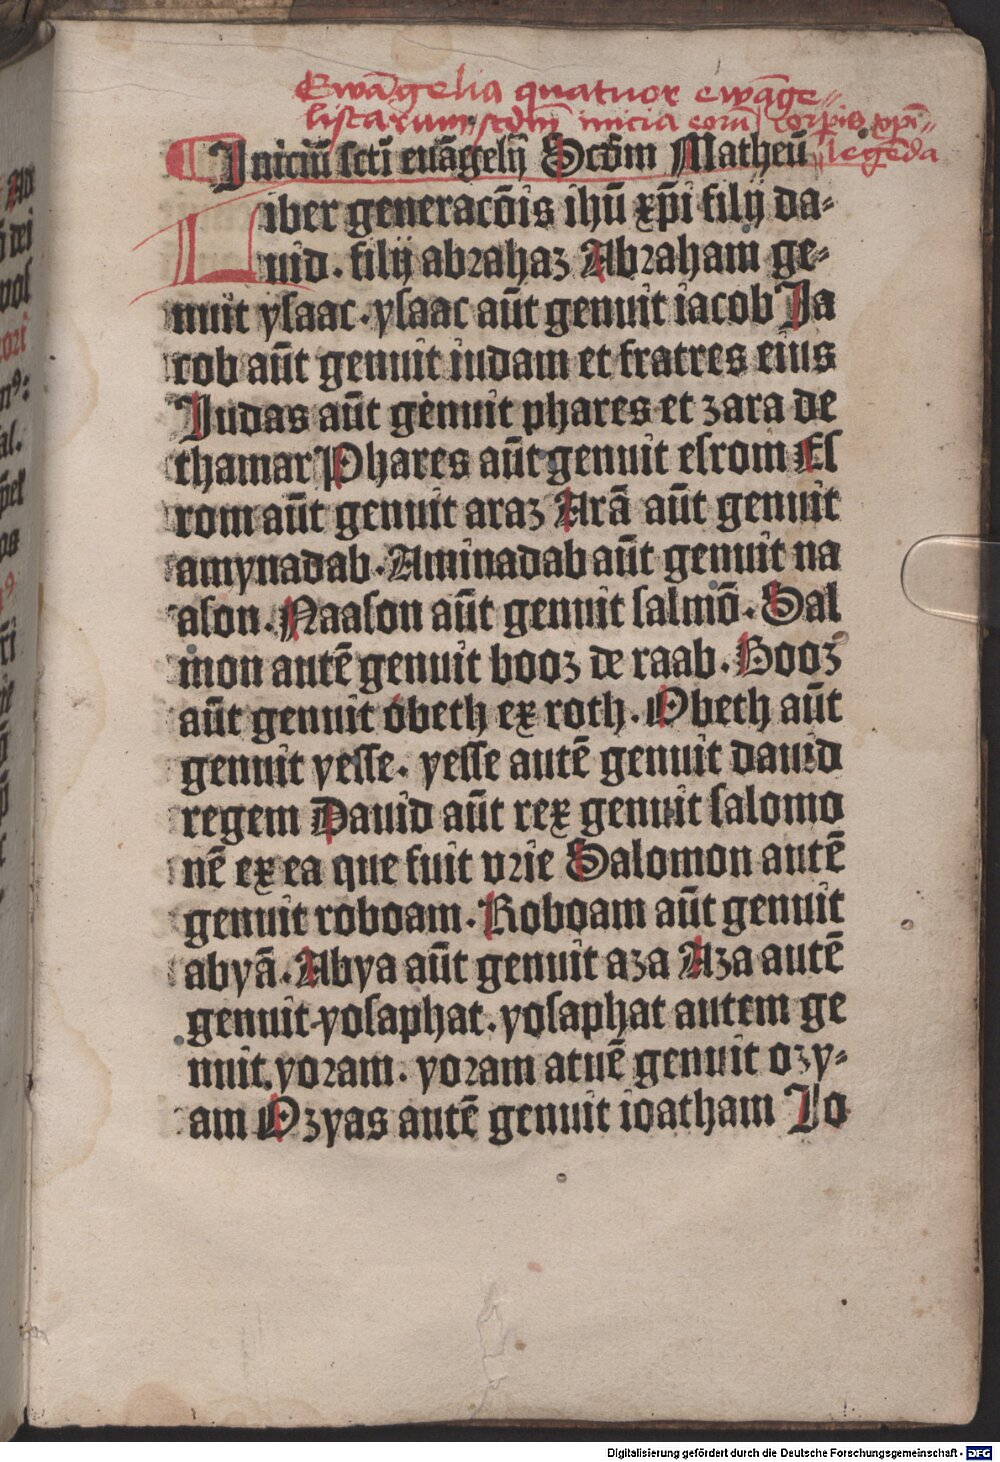 Ewāgelia quatuor ewāge-
listarum scdm̄ inicia eorū corpis xpī-
legēda
Iniciū scti euāgelij Scdm Matheū
Liber generacōis ihū xp̄i filij da-
uid. filij abrahaz Abraham ge-
nuit ysaac. ysaac aūt genuit iacob Ja
cob aūt genuit iudam et fratres eius
Judas aūt genuit phares et zara de
thamar Phares aūt genuit esrom Es
rom aūt genuit araz Arā aūt genuit
amynadab. Aminadab aūt genuit na
ason. Naason aūt genuit salmō. Sal
mon autē genuit booz de raab. Booz
aūt genuit obeth ex roth. Obeth aūt
genuit yesse. yesse autē genuit dauid
regem Dauid aūt rex genuit salomo
nē ex ea que fuit vrie Salomon autē
genuit roboam. Roboam aūt genuit
abyā. Abya aūt genuit aza Aza autē
genuit yosaphat. yosaphat autem ge
nuit yoram. yoram atuē genuit ozy-
am Ozyas autē genuit ioatham Jo
Digitalisierung gefördert durch die Deutsche Forschungsgemeinschaft - DFG